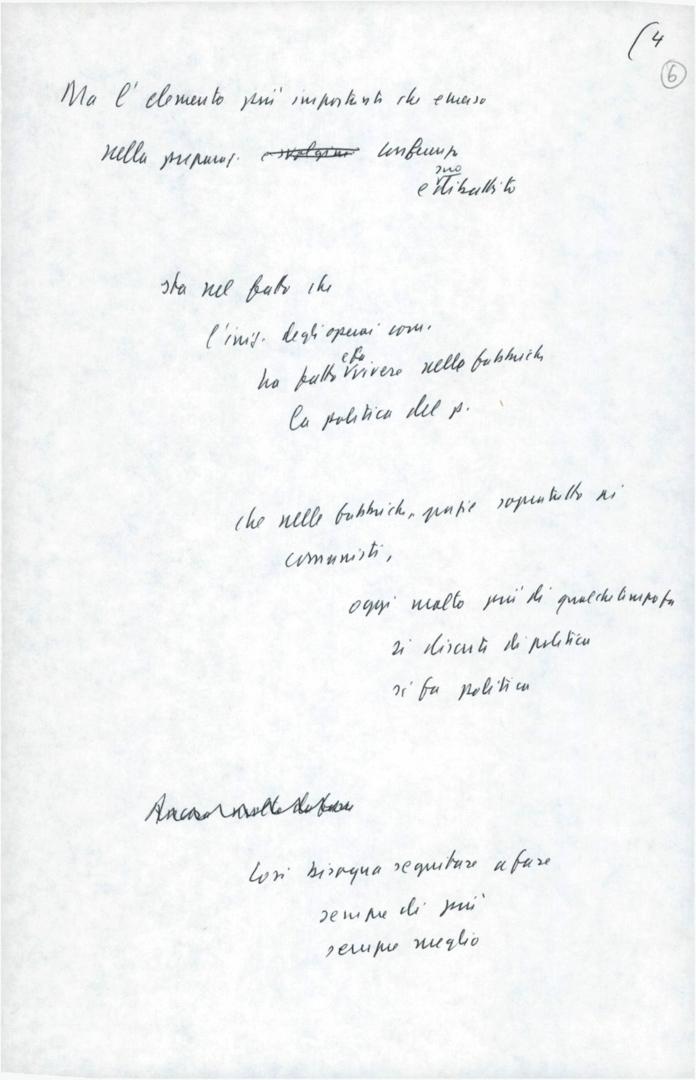 (4
6
Ma l'elemento più importante che emerso
nella preparaz. conferenza
suo
e dibattito
sta nel fatto che
l'iniz. degli operai com.
e fa
ha fatto vivere nelle fabbriche
la politica del p.
che nelle fabbriche, grazie sopratutto ai
comunisti,
oggi molto più di qualche tempo fa
si discute di politica
si fa politica
Così bisogna seguitare a fare
sempre di più
sempre meglio